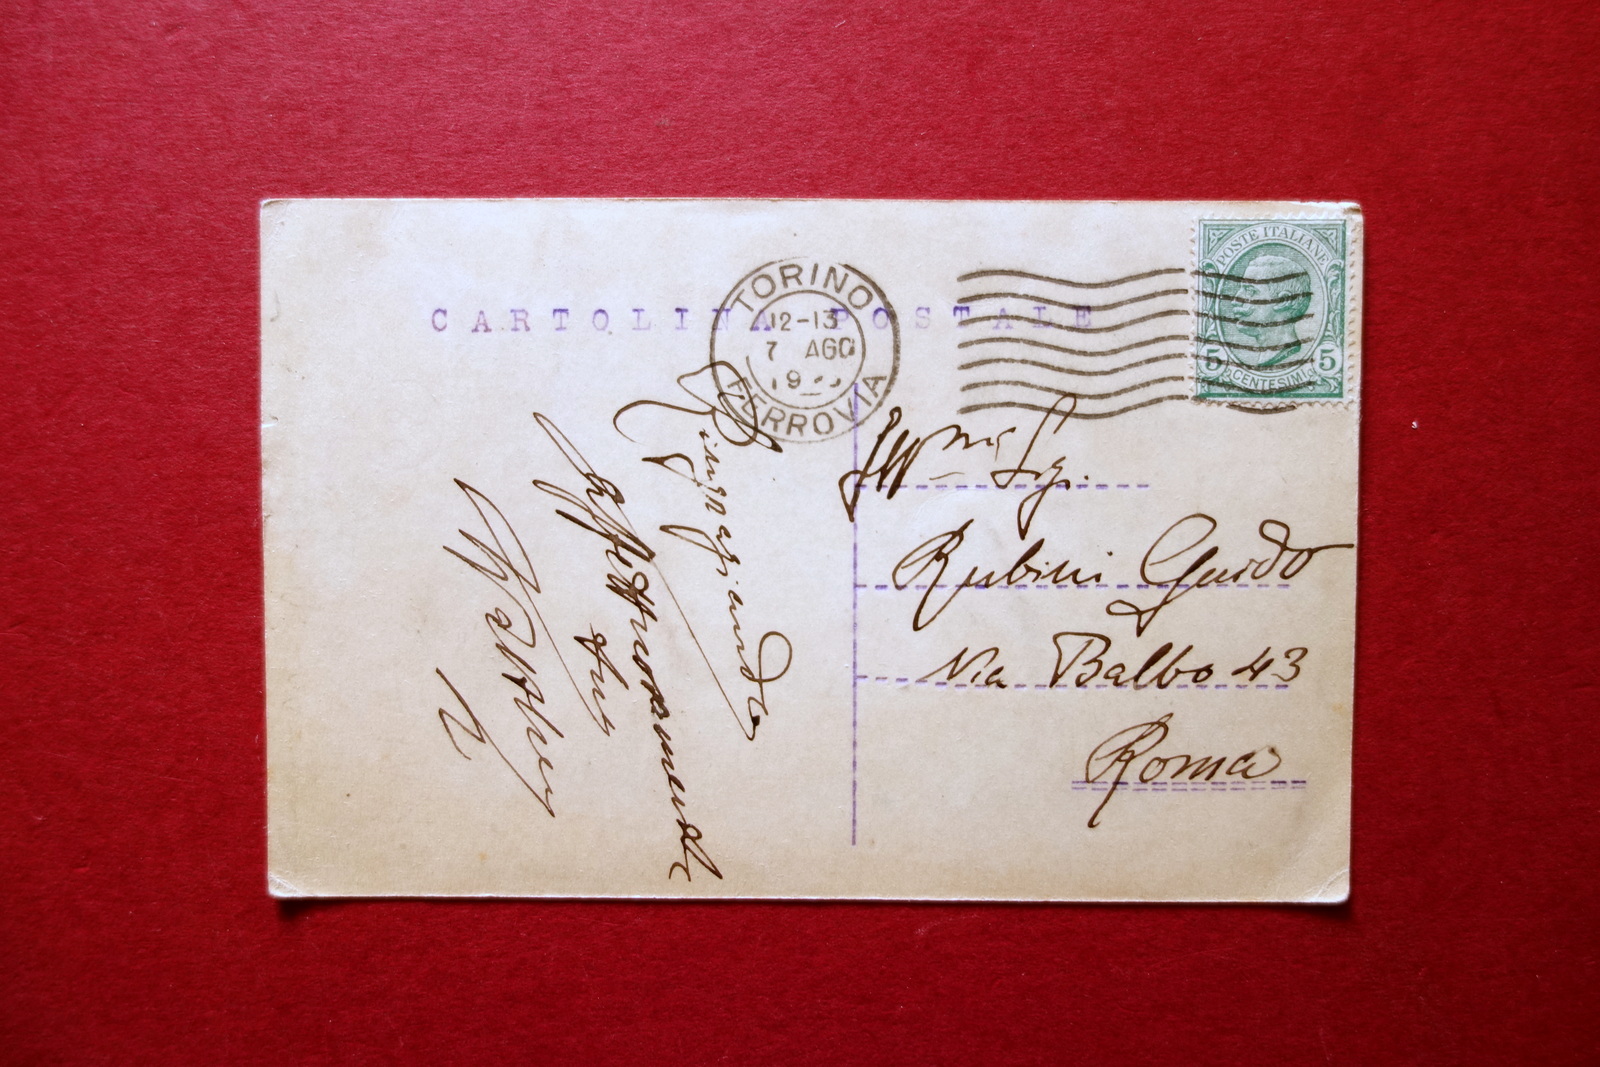 CARTOLINA POSTALE
TORINO
12-13
7 AGO
FERROVIA
POSTE ITALIANE
5 CENTESIMI 5
Ill.mo Sig.
Rubini Guido
Via Balbo 43
Roma
Ringraziando
affettuosamente